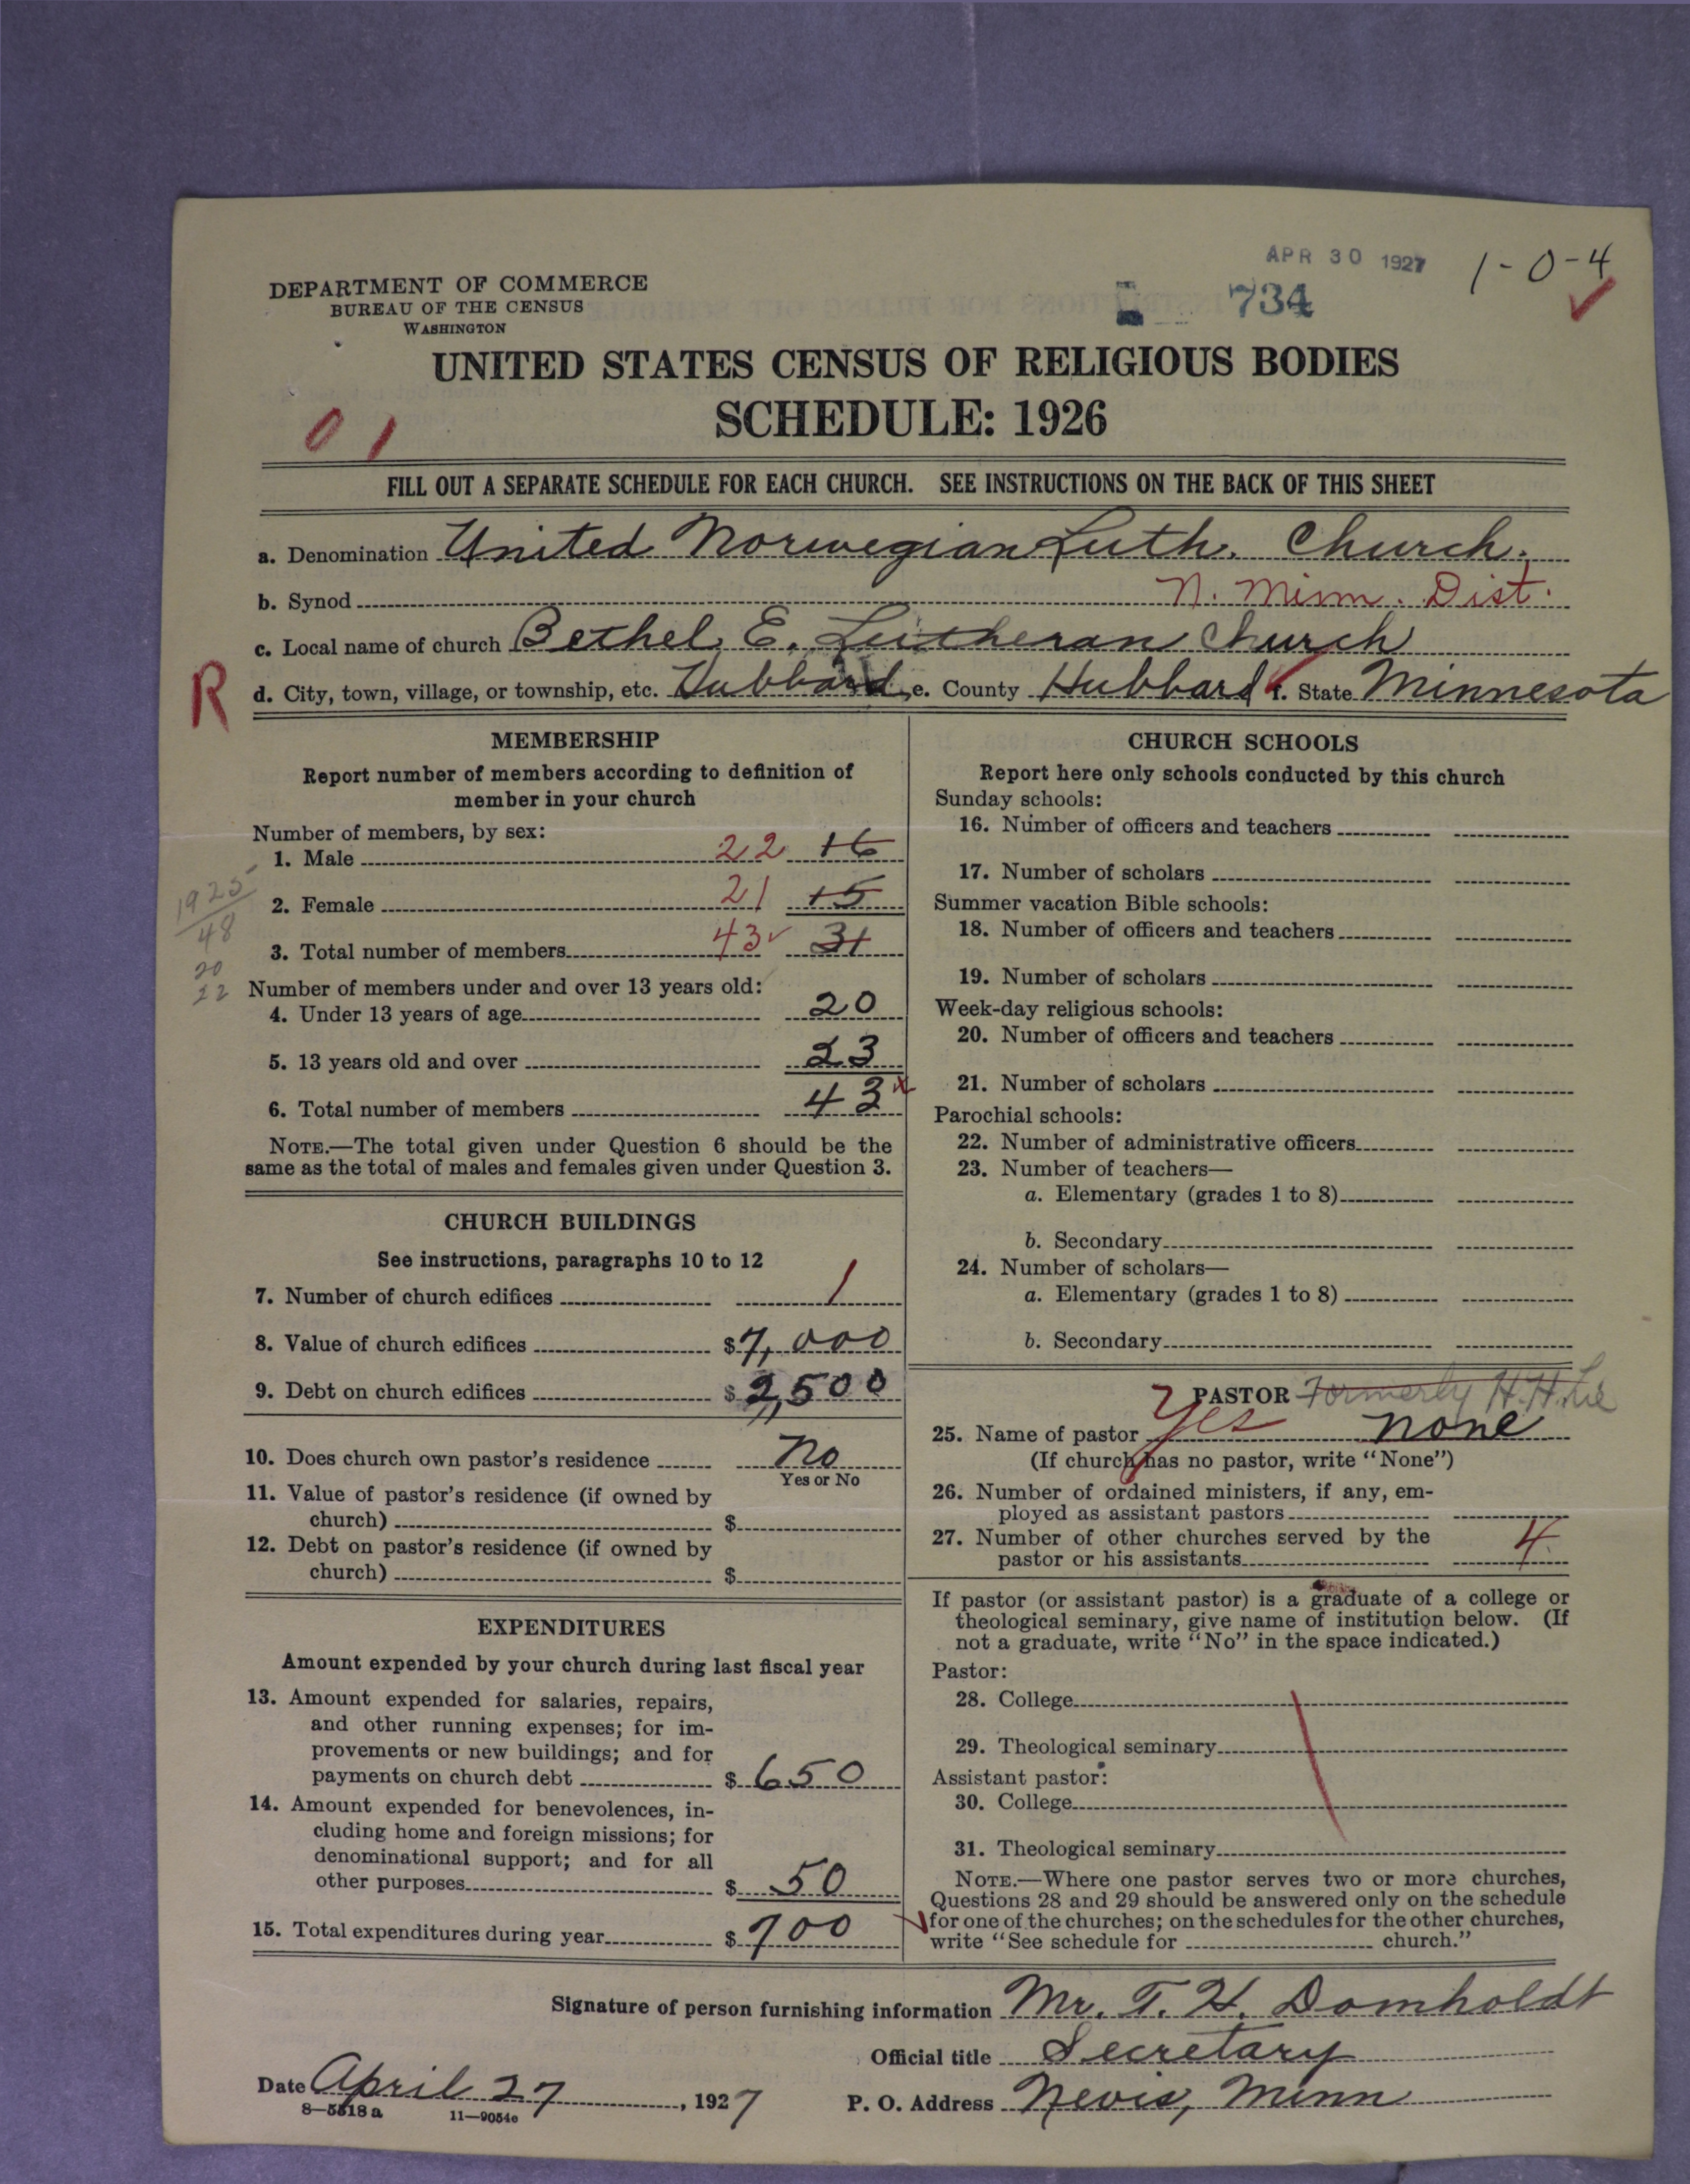 APR 30 1927
1-0-4
DEPARTMENT OF COMMERCE
BUREAU OF THE CENSUS
WASHINGTON
734
UNITED STATES CENSUS OF RELIGIOUS BODIES
SCHEDULE: 1926
0 1
FILL OUT A SEPARATE SCHEDULE FOR EACH CHURCH. SEE INSTRUCTIONS ON THE BACK OF THIS SHEET
a. Denomination United Norwegian Luth. Church.
b. Synod N. Minn. Dist.
c. Local name of church Bethel E. Lutheran Church
R
d. City, town, village, or township, etc. Hubbard e. County Hubbard f. State Minnesota
MEMBERSHIP
Report number of members according to definition of
member in your church
Number of members, by sex:
1. Male 22 16
2. Female 21 15
3. Total number of members 43 31
1925
48
20
22
Number of members under and over 13 years old:
4. Under 13 years of age 20
5. 13 years old and over 23
6. Total number of members 43
NOTE.—The total given under Question 6 should be the
same as the total of males and females given under Question 3.
CHURCH BUILDINGS
See instructions, paragraphs 10 to 12
7. Number of church edifices 1
8. Value of church edifices $7,000
9. Debt on church edifices $2,500
10. Does church own pastor's residence No
Yes or No
11. Value of pastor's residence (if owned by
church) $
12. Debt on pastor's residence (if owned by
church) $
EXPENDITURES
Amount expended by your church during last fiscal year
13. Amount expended for salaries, repairs,
and other running expenses; for im-
provements or new buildings; and for
payments on church debt $650
14. Amount expended for benevolences, in-
cluding home and foreign missions; for
denominational support; and for all
other purposes $50
15. Total expenditures during year $700
CHURCH SCHOOLS
Report here only schools conducted by this church
Sunday schools:
16. Number of officers and teachers
17. Number of scholars
Summer vacation Bible schools:
18. Number of officers and teachers
19. Number of scholars
Week-day religious schools:
20. Number of officers and teachers
21. Number of scholars
Parochial schools:
22. Number of administrative officers
23. Number of teachers—
a. Elementary (grades 1 to 8)
b. Secondary
24. Number of scholars—
a. Elementary (grades 1 to 8)
b. Secondary
PASTOR Formerly H. H. Lie
25. Name of pastor Yes none
(If church has no pastor, write "None")
26. Number of ordained ministers, if any, em-
ployed as assistant pastors
27. Number of other churches served by the
pastor or his assistants 4
If pastor (or assistant pastor) is a graduate of a college or
theological seminary, give name of institution below. (If
not a graduate, write "No" in the space indicated.)
Pastor:
28. College
29. Theological seminary
Assistant pastor:
30. College
31. Theological seminary
NOTE.—Where one pastor serves two or more churches,
Questions 28 and 29 should be answered only on the schedule
for one of the churches; on the schedules for the other churches,
write "See schedule for church."
Signature of person furnishing information Mr. T. H. Domholdt
Official title Secretary
Date April 27, 1927
P. O. Address Nevis, Minn
8—5518a 11—9054e